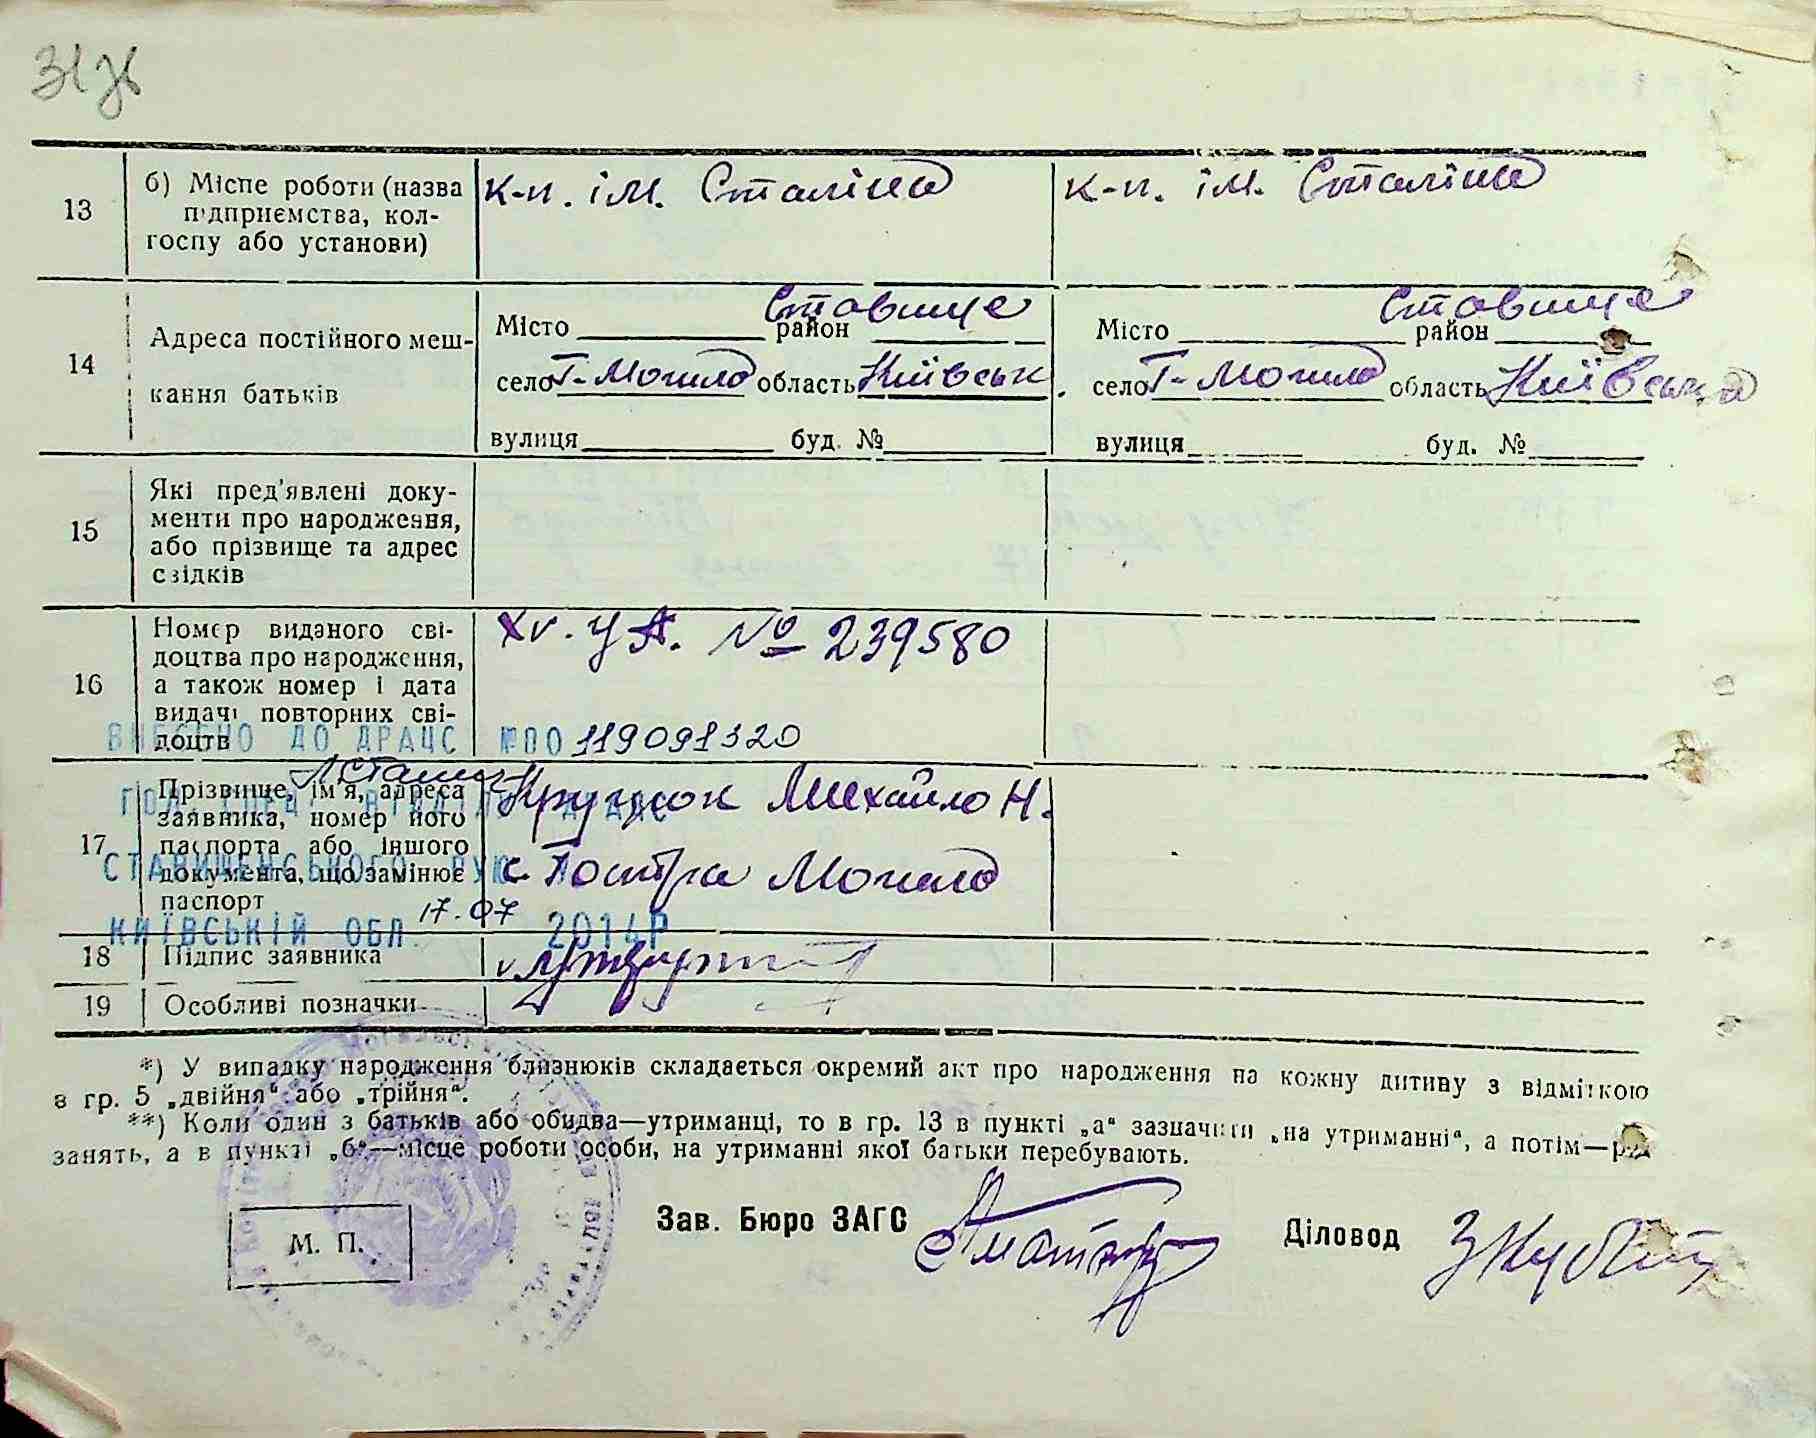 13
б) Місце роботи (назва
підприємства, кол-
госпу або установи)
к-п. ім. Сталіна
к-п. ім. Сталіна
14
Адреса постійного меш-
кання батьків
Місто район Ставище
село Г-Могила область Київськ.
вулиця буд. №
Місто район Ставище
село Г-Могила область Київська
вулиця буд. №
15
Які пред'явлені доку-
менти про народження,
або прізвище та адрес
свідків
16
Номер виданого сві-
доцтва про народження,
а також номер і дата
видачі повторних сві-
доцтв
ХV. УА. № 239580
ВНЕСЕНО ДО ДРАЦС №00119091320
17
Прізвище, ім'я, адреса
заявника, номер його
паспорта або іншого
документа, що замінює
паспорт
Михайло Н.
с. Гостра Могила
СТАВИЩЕНСЬКОГО РУЮ
КИЇВСЬКІЙ ОБЛ. 17.07 2014Р
18
Підпис заявника
19
Особливі позначки
*) У випадку народження близнюків складається окремий акт про народження на кожну дитину з відміткою
в гр. 5 „двійня“ або „трійня“.
**) Коли один з батьків або обидва—утриманці, то в гр. 13 в пункті „а“ зазначити „на утриманні“, а потім—рід
занять, а в пункті „б“—місце роботи особи, на утриманні якої батьки перебувають.
М. П.
Зав. Бюро ЗАГС
Діловод